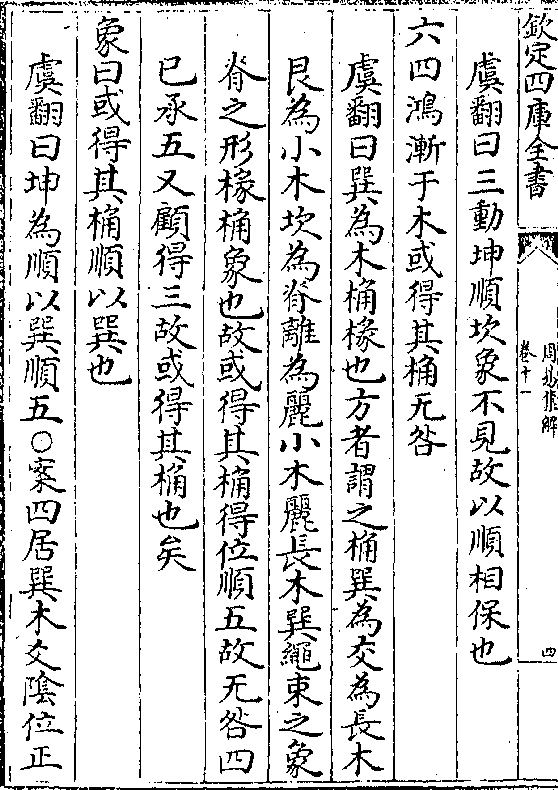 欽定四庫全書
周易集解
卷十一
四
虞翻曰三動坤順坎象不見故以順相保也
六四鴻漸于木或得其桷无咎
虞翻曰巽為木桷椽也方者謂之桷巽為交為長木
艮為小木坎為脊離為麗小木麗長木巽繩束之象
脊之形椽桷象也故或得其桷得位順五故无咎四
已承五又顧得三故或得其桷也矣
象曰或得其桷順以巽也
虞翻曰坤為順以巽順五○案四居巽木爻陰位正